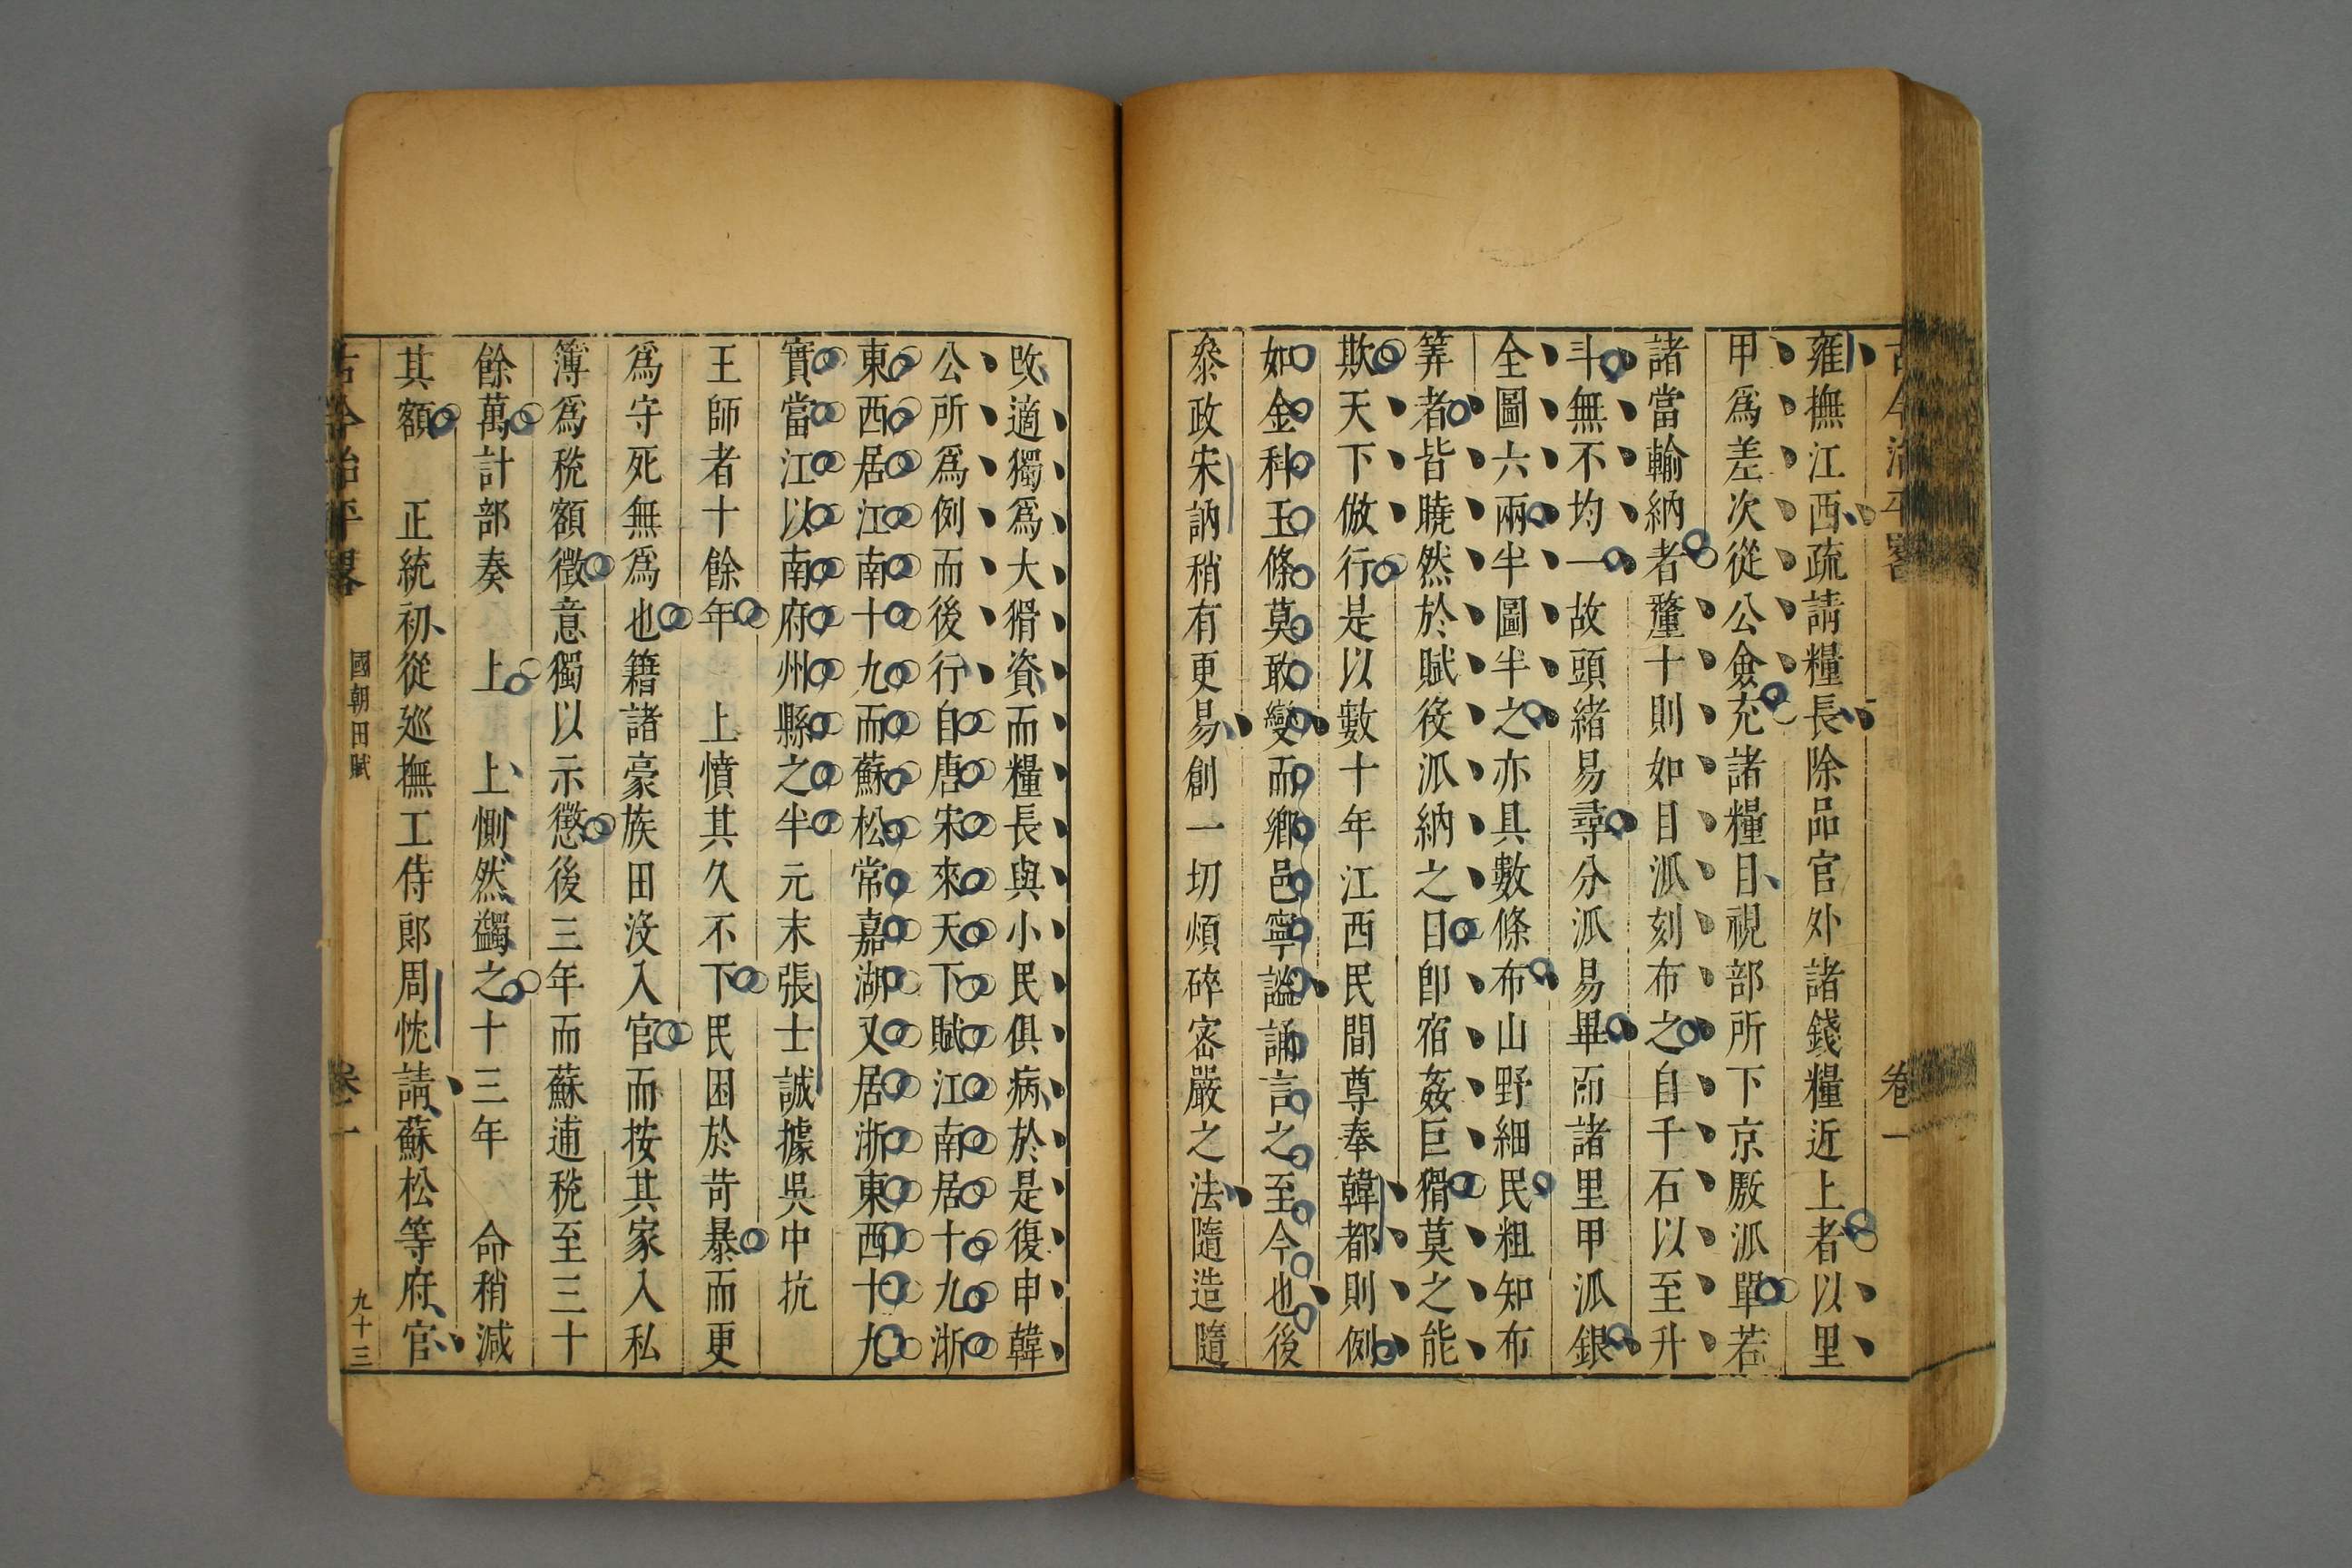 古今治平畧
卷一
雍撫江西疏請糧長除品官外諸錢糧近上者以里
甲爲差次從公僉充諸糧目視部所下京厫派單若
諸當輸納者釐十則如目派刻布之自千石以至升
斗無不均一故頭緒易尋分派易畢而諸里甲派銀
全圖六兩半圖半之亦具數條布山野細民粗知布
筭者皆曉然於賦役派納之目卽宿姦巨猾莫之能
欺天下倣行是以數十年江西民間尊奉韓都則例
如金科玉條莫敢變而鄉邑寧謐誦言之至今也後
叅政宋訥稍有更易創一切煩碎密嚴之法隨造隨
改適獨爲大猾資而糧長與小民俱病於是復申韓
公所爲例而後行自唐宋來天下賦江南居十九浙
東西居江南十九而蘇松常嘉湖又居浙東西十九
實當江以南府州縣之半元末張士誠據吳中抗
王師者十餘年　上憤其久不下民困於苛暴而更
爲守死無爲也籍諸豪族田沒入官而按其家入私
簿爲稅額徵意獨以示懲後三年而蘇逋稅至三十
餘萬計部奏　上　上惻然蠲之十三年　命稍減
其額　正統初從廵撫工侍郎周忱請蘇松等府官
古今治平畧
國朝田賦
卷一
九十三